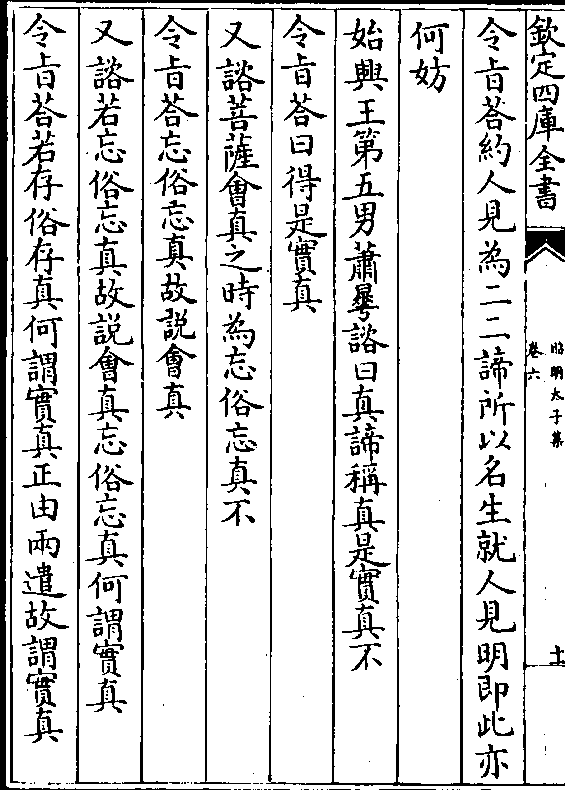 欽定四庫全書
昭明太子集
卷六
十
令旨荅約人見為二二諦所以名生就人見明即此亦
何妨
始興王第五男蕭曅諮曰真諦稱真是實真不
令旨荅曰得是實真
又諮菩薩會真之時為忘俗忘真不
令旨荅忘俗忘真故説會真
又諮若忘俗忘真故説會真忘俗忘真何謂實真
令旨荅若存俗存真何謂實真正由兩遣故謂實真